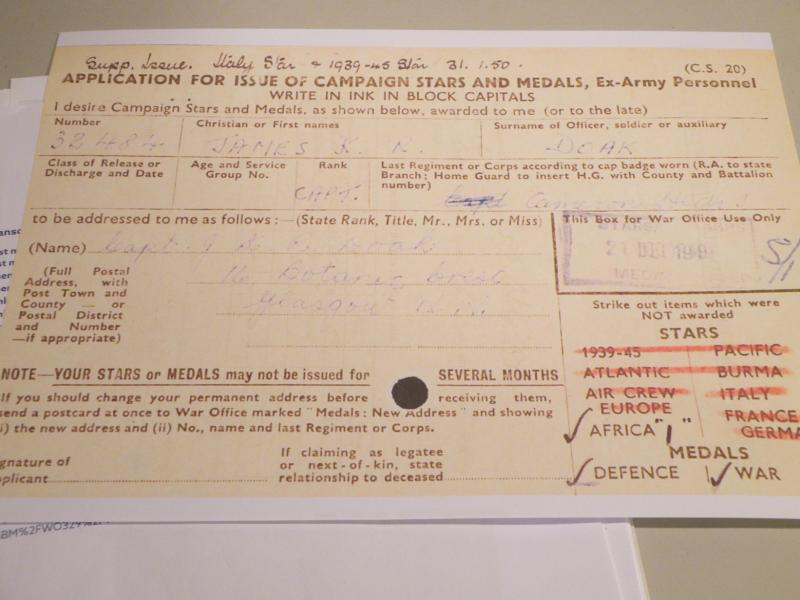 Supp. Issue. Italy Star & 1939-45 Star 31.1.50.
(C.S. 20)
APPLICATION FOR ISSUE OF CAMPAIGN STARS AND MEDALS, Ex-Army Personnel
WRITE IN INK IN BLOCK CAPITALS
I desire Campaign Stars and Medals, as shown below, awarded to me (or to the late)
Number
32484
Christian or First names
JAMES K. N.
Surname of Officer, soldier or auxiliary
DOAK
Class of Release or
Discharge and Date
Age and Service
Group No.
Rank
CAPT.
Last Regiment or Corps according to cap badge worn (R.A. to state
Branch; Home Guard to insert H.G. with County and Battalion
number)
Cameron
to be addressed to me as follows:—(State Rank, Title, Mr., Mrs. or Miss)
(Name) Capt. J K N Doak
(Full Postal
Address, with
Post Town and
County — or
Postal District
and Number
—if appropriate)
16 Botanic Cres
Glasgow
This Box for War Office Use Only
STARS
21 DEC 194
MEDA
S/1
Strike out items which were
NOT awarded
STARS
1939-45 PACIFIC
ATLANTIC BURMA
AIR CREW ITALY
EUROPE
FRANCE
GERMA
AFRICA "1"
MEDALS
DEFENCE WAR
NOTE—YOUR STARS or MEDALS may not be issued for SEVERAL MONTHS
If you should change your permanent address before receiving them,
send a postcard at once to War Office marked "Medals: New Address" and showing
i) the new address and (ii) No., name and last Regiment or Corps.
gnature of
plicant
If claiming as legatee
or next-of-kin, state
relationship to deceased